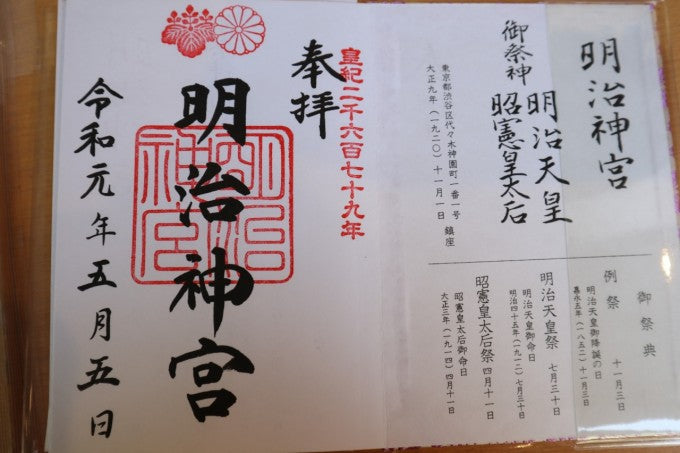 明治神宮
御祭神
明治天皇
昭憲皇太后
東京都渋谷区代々木神園町一番一号
大正九年（一九二〇）十一月一日 鎮座
御祭典
例祭 十一月三日
明治天皇御降誕の日
嘉永五年（一八五二）十一月三日
明治天皇祭 七月三十日
明治天皇御命日
明治四十五年（一九一二）七月三十日
昭憲皇太后祭 四月十一日
昭憲皇太后御命日
大正三年（一九一四）四月十一日
皇紀二千六百七十九年
奉拝
明治神宮
明治神宮
令和元年五月五日